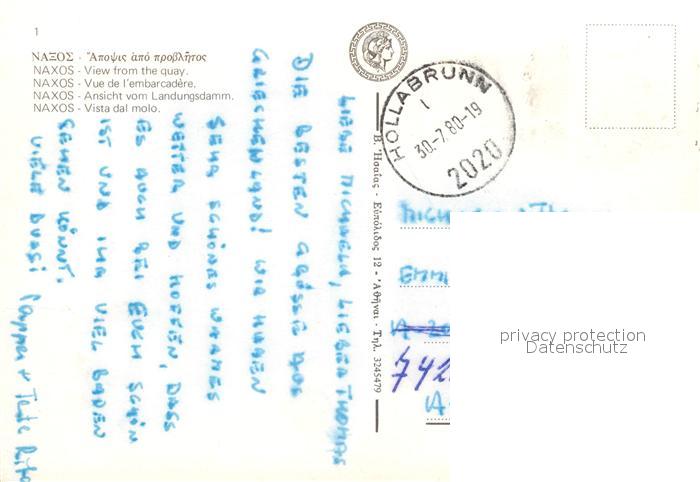 1
ΝΑΞΟΣ - Ἄποψις ἀπό προβλῆτος
NAXOS - View from the quay.
NAXOS - Vue de l'embarcadère.
NAXOS - Ansicht vom Landungsdamm.
NAXOS - Vista dal molo.
LIEBE MICHAELA, LIEBER THOMAS
DIE BESTEN GRÜSSE AUS
GRIECHENLAND! WIR HABEN
SEHR SCHÖNES WARMES
WETTER UND HOFFEN, DASS
ES AUCH BEI EUCH SCHÖN
IST UND IHR VIEL BADEN
GEHEN KÖNNT.
VIELE BUSSI
HOLLABRUNN
30.-7.80-19
2020
Εὐπόλιδος 12 - Ἀθῆναι - Τηλ. 3245479
privacy protection
Datenschutz